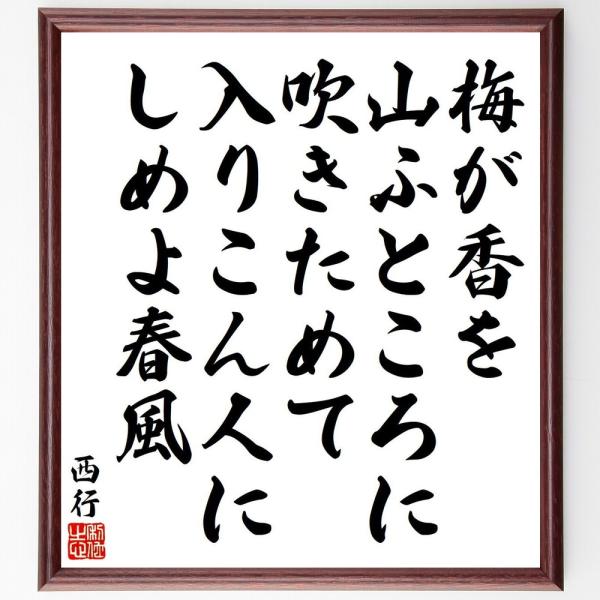 梅が香を
山ふところに
吹きためて
入りこん人に
しめよ春風
西行